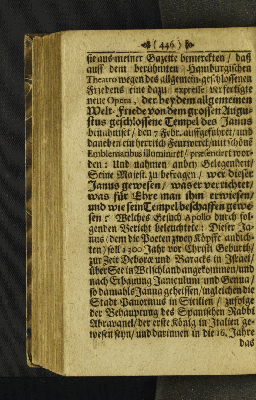 ( 446 )
sie aus meiner Gazette bemerckten / daß
auff dem berühmten Hamburgischen
Theatro wegen des allgemein-geschlossenen
Friedens eine dazu expresse verfertigte
neue Opera, der bey dem allgemeinen
Welt-Friede von dem grossen Augu-
stus geschlossene Tempel des Janus
benahmset / den 7 Febr. auffgeführet / und
daneben ein herrlich Feurwerck / mit schönē
Emblematibus illuminiret / præsentiret wor-
den: Und nahmen anbey Gelegenheit /
Seine Majest. zu befragen / wer dieser
Janus gewesen / was er verrichtet /
was für Ehre man ihm erwiesen /
und wie sein Tempel beschaffen gewe-
sen? Welches Gesuch Apollo durch fol-
genden Bericht beleuchtete: Dieser Ja-
nus (dem die Poeten zwey Köpffe andich-
ten) soll 1300 Jahr vor Christi Geburth /
zur Zeit Deboræ und Baracks in Israel /
über See in Welschland angekommen / und
nach Erbauung Janiculum und Genua /
so damahls Janua geheissen / ingleichen die
Stadt Panormus in Sicilien / zufolge
der Behauptung des Spanischen Rabbi
Abravanel / der erste König in Italien ge-
wesen seyn / und darinnen in die 16. Jahre
das